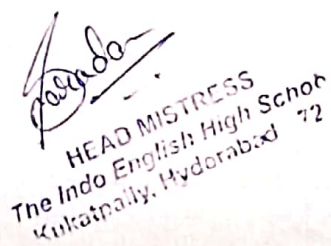 Sarada
HEAD MISTRESS
The Indo English High Schoo
Kukatpally, Hyderabad 72